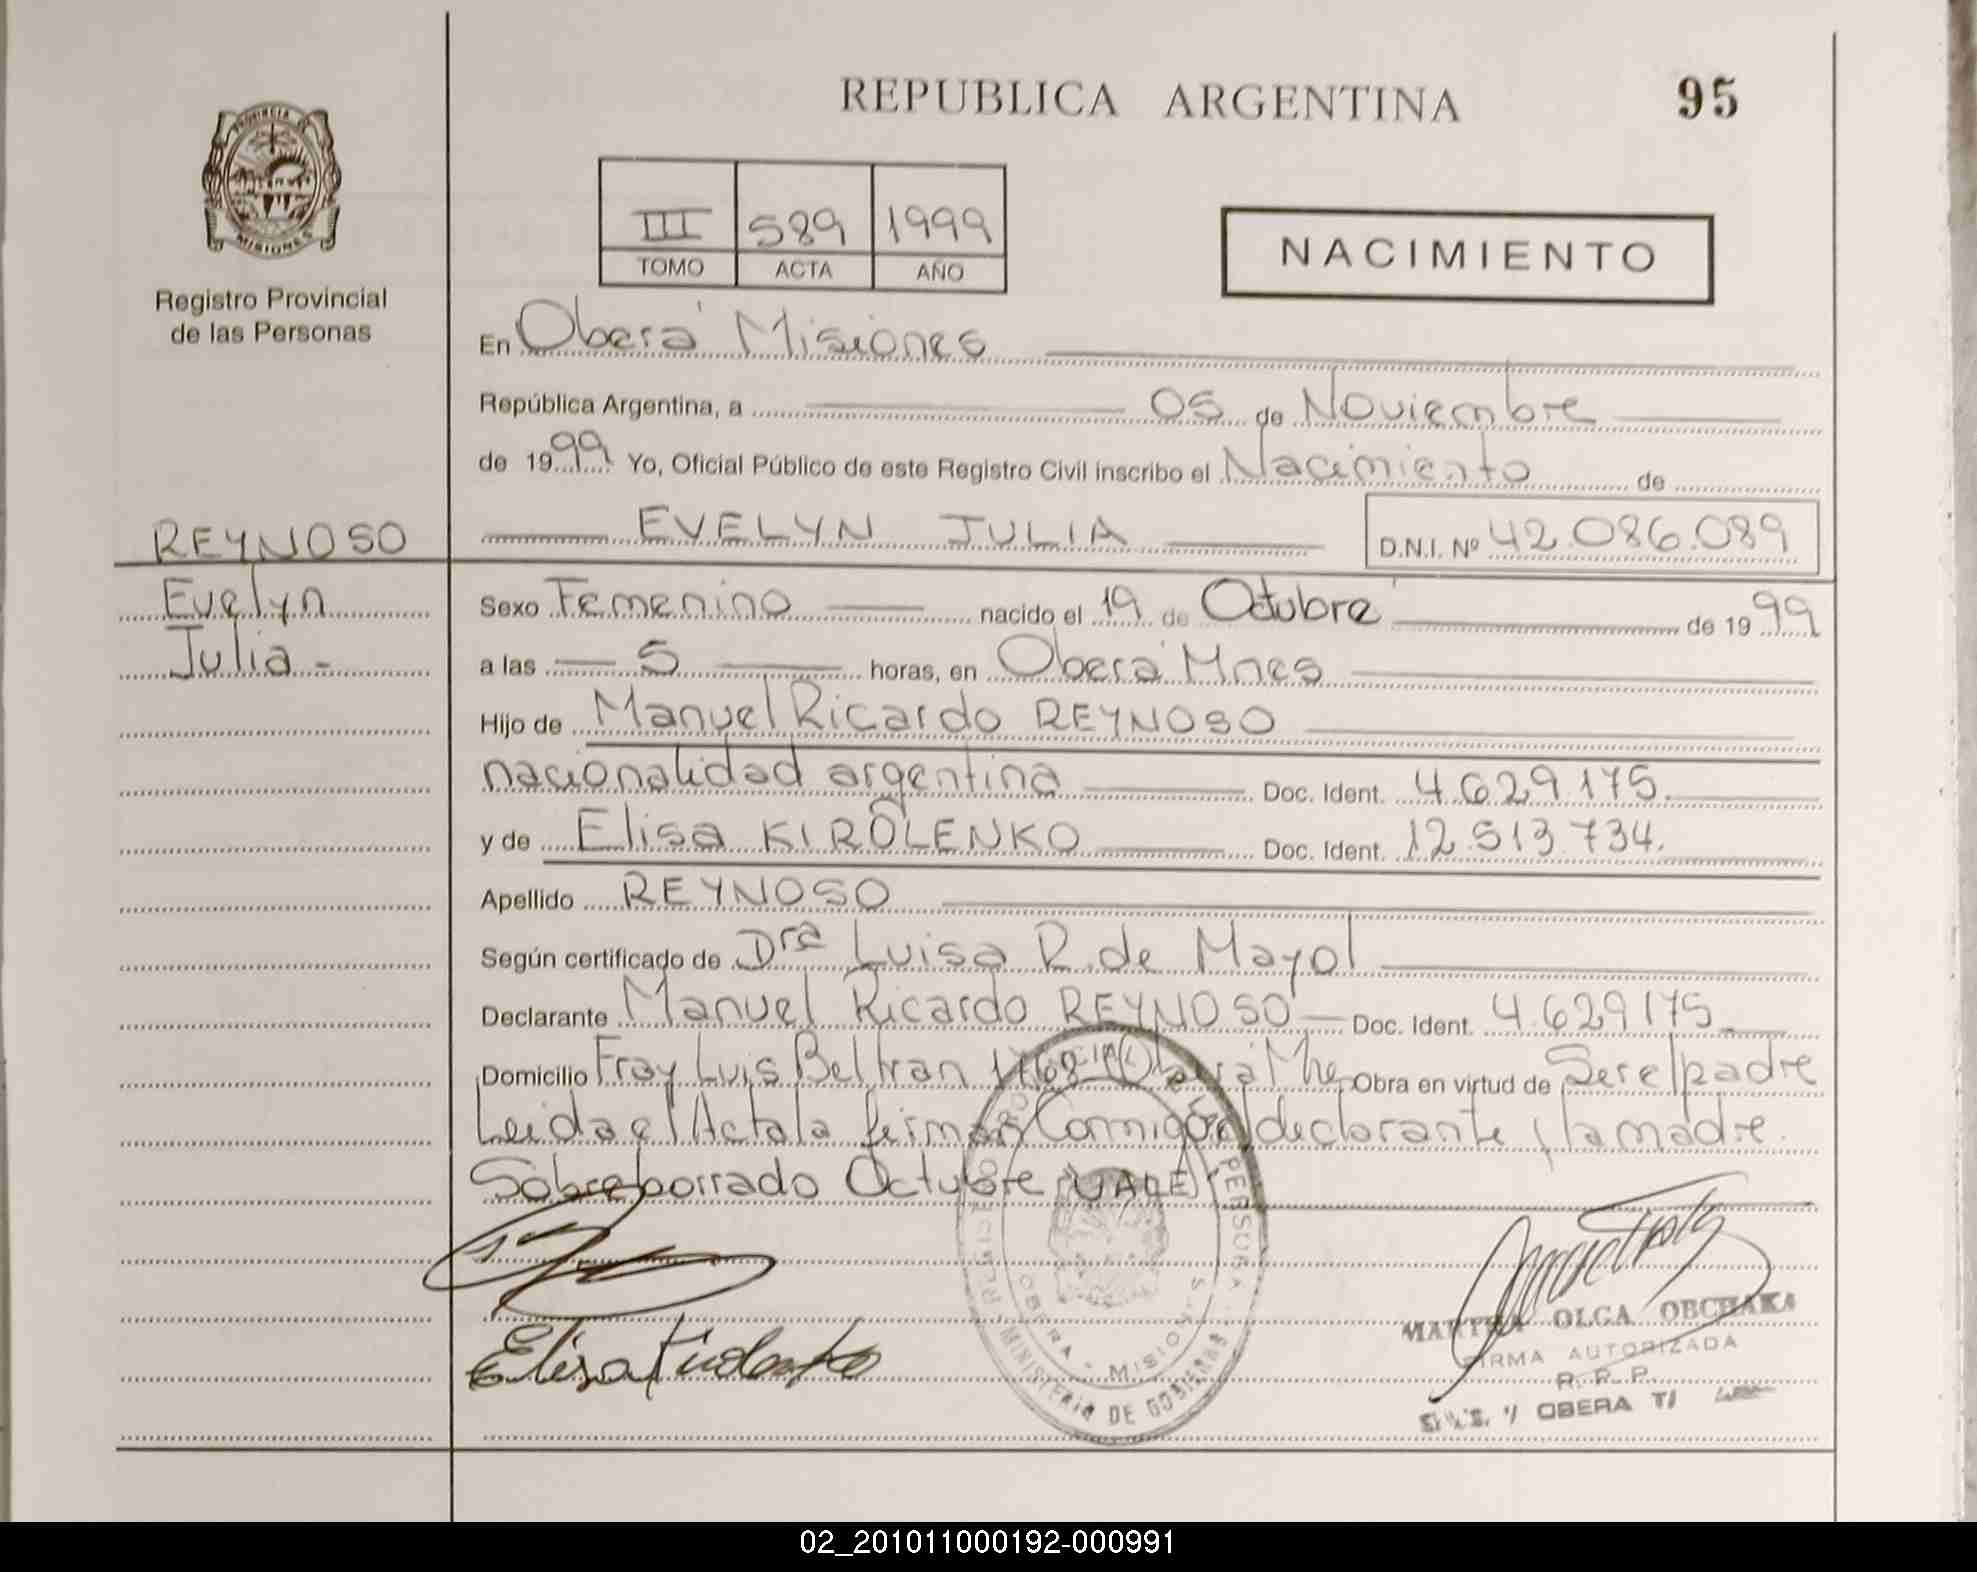 REPUBLICA ARGENTINA
95
PROVINCIA DE
MISIONES
Registro Provincial
de las Personas
III 589 1999
TOMO ACTA AÑO
NACIMIENTO
En Oberá Misiones
República Argentina, a 05 de Noviembre
de 1999 Yo, Oficial Público de este Registro Civil inscribo el Nacimiento de
REYNOSO
Evelyn
Julia -
EVELYN JULIA D.N.I. Nº 42.086.089
Sexo Femenino nacido el 19 de Octubre de 1999
a las 5 horas, en Oberá Mnes
Hijo de Manuel Ricardo REYNOSO
nacionalidad argentina Doc. Ident. 4.629.175.
y de Elisa KIROLENKO Doc. Ident. 12.513.734.
Apellido REYNOSO
Según certificado de Dra Luisa R. de Mayol
Declarante Manuel Ricardo REYNOSO Doc. Ident. 4.629.175.
Domicilio Fray Luis Beltran Oberá Obra en virtud de Ser el padre
Leida el Acta la firman Conmigo el declarante y la madre.
Sobreborrado Octubre VALE
Elisa Kirolenko
MINISTERIO DE GOBIERNO
OBERA - MISIONES
MARTHA OLGA OBCHAKA
FIRMA AUTORIZADA
R. P. P.
OBERA
02_201011000192-000991